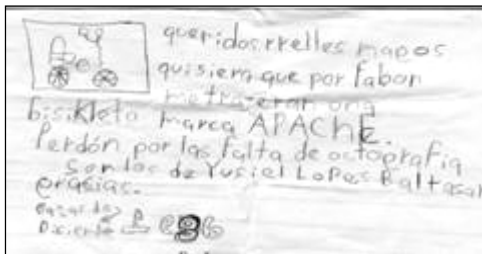 queridos rrelles magos
quisiera que por fabon
metrageran una
bisikleta marca APACHE.
Perdón por las falta de octografia
Son los de Yusiel LoPes Baltasar
grasias.